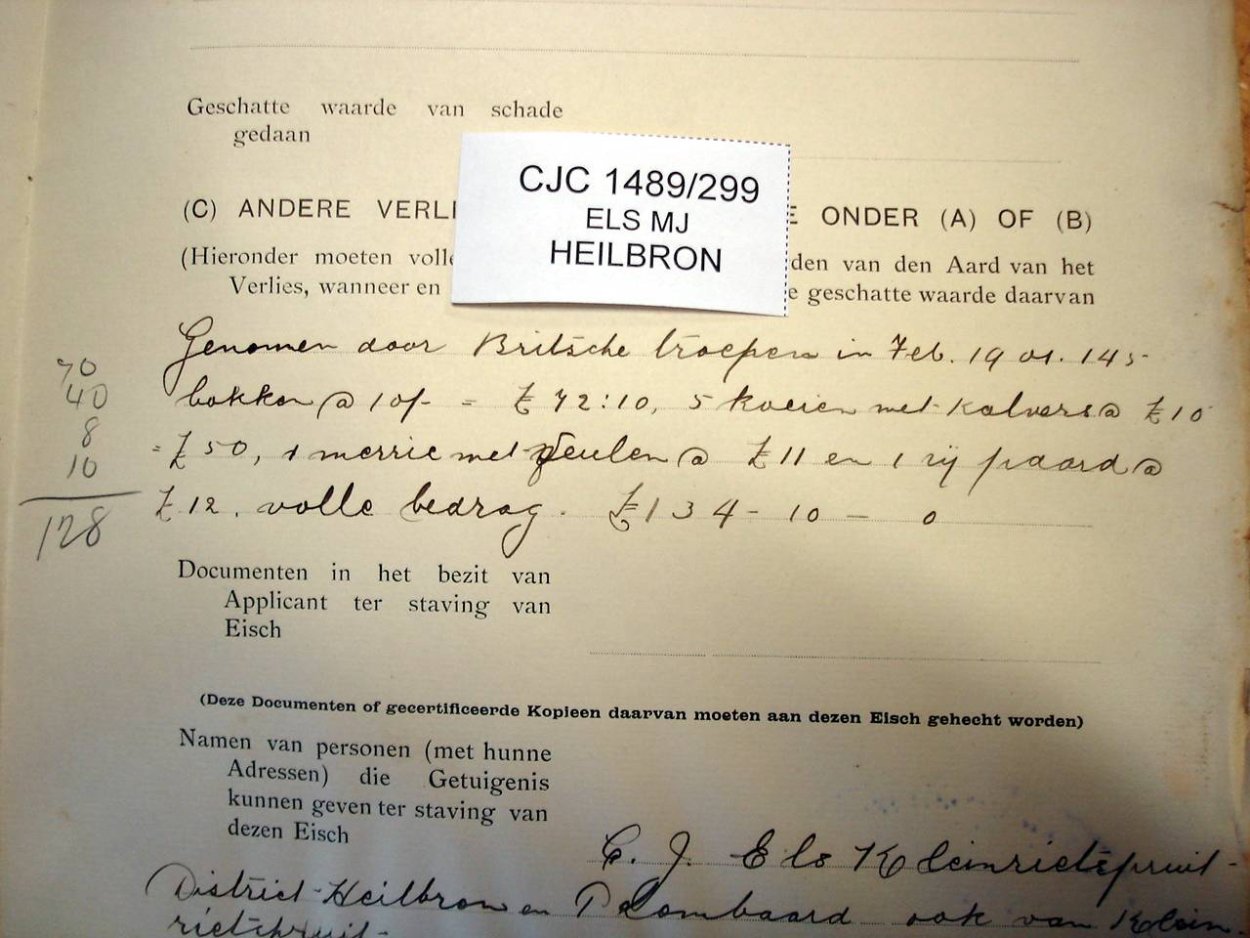 Geschatte waarde van schade
gedaan
CJC 1489/299
ELS MJ
HEILBRON
(C) ANDERE VERLI E ONDER (A) OF (B)
(Hieronder moeten volle den van den Aard van het
Verlies, wanneer en e geschatte waarde daarvan
Genomen door Britsche troepen in Feb. 1901. 145
bokken @ 10/- = £72:10, 5 koeien met kalvers @ £10
= £50, 1 merrie met veulen @ £11 en 1 rij paard @
£12. volle bedrag. £134-10-0
70
40
8
10
128
Documenten in het bezit van
Applicant ter staving van
Eisch
(Deze Documenten of gecertificeerde Kopieen daarvan moeten aan dezen Eisch gehecht worden)
Namen van personen (met hunne
Adressen) die Getuigenis
kunnen geven ter staving van
dezen Eisch
C. J. Els Kleinrietspruit-
District Heilbron en Lombaard ook van Klein-
rietspruit-